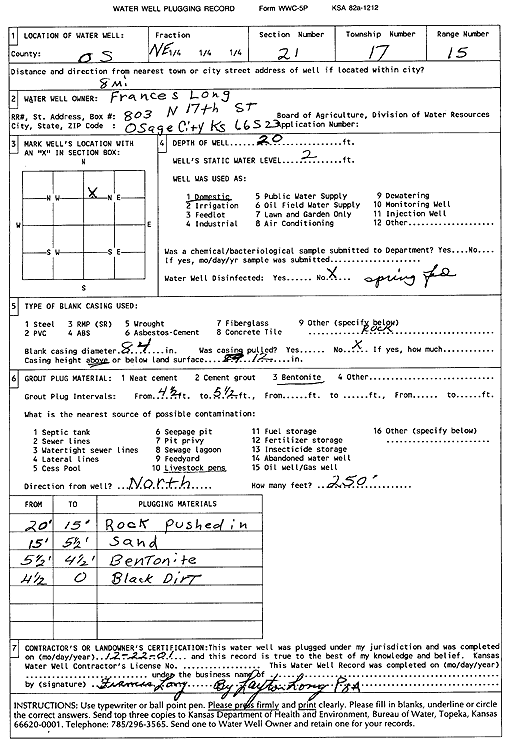 WATER WELL PLUGGING RECORD Form WWC-5P KSA 82a-1212
1 LOCATION OF WATER WELL: Fraction Section Number Township Number Range Number
County: OS NE 1/4 1/4 1/4 21 17 15
Distance and direction from nearest town or city street address of well if located within city?
8 Mi
2 WATER WELL OWNER: Frances Long
RR#, St. Address, Box #: 803 N 17th ST Board of Agriculture, Division of Water Resources
City, State, ZIP Code : Osage City Ks 66523 Application Number:
3 MARK WELL'S LOCATION WITH AN "X" IN SECTION BOX:
N
X
NW NE
W E
SW SE
S
4 DEPTH OF WELL 20 ft.
WELL'S STATIC WATER LEVEL 2 ft.
WELL WAS USED AS:
1 Domestic 5 Public Water Supply 9 Dewatering
2 Irrigation 6 Oil Field Water Supply 10 Monitoring Well
3 Feedlot 7 Lawn and Garden Only 11 Injection Well
4 Industrial 8 Air Conditioning 12 Other
Was a chemical/bacteriological sample submitted to Department? Yes....No...
If yes, mo/day/yr sample was submitted
Water Well Disinfected: Yes...... No. X spring fed
5 TYPE OF BLANK CASING USED:
1 Steel 3 RMP (SR) 5 Wrought 7 Fiberglass 9 Other (specify below)
2 PVC 4 ABS 6 Asbestos-Cement 8 Concrete Tile Rock
Blank casing diameter 84 in. Was casing pulled? Yes...... No X If yes, how much
Casing height above or below land surface 12 in.
6 GROUT PLUG MATERIAL: 1 Neat cement 2 Cement grout 3 Bentonite 4 Other
Grout Plug Intervals: From 4½ ft. to 5½ ft., From......ft. to ......ft., From...... to......ft.
What is the nearest source of possible contamination:
1 Septic tank 6 Seepage pit 11 Fuel storage 16 Other (specify below)
2 Sewer lines 7 Pit privy 12 Fertilizer storage
3 Watertight sewer lines 8 Sewage lagoon 13 Insecticide storage
4 Lateral lines 9 Feedyard 14 Abandoned water well
5 Cess Pool 10 Livestock pens 15 Oil well/Gas well
Direction from well? North How many feet? 250'
FROM TO PLUGGING MATERIALS
20' 15' Rock Pushed in
15' 5½' Sand
5½' 4½' Bentonite
4½ 0 Black Dirt
7 CONTRACTOR'S OR LANDOWNER'S CERTIFICATION: This water well was plugged under my jurisdiction and was completed
on (mo/day/year) 12-22-01 and this record is true to the best of my knowledge and belief. Kansas
Water Well Contractor's License No. This Water Well Record was completed on (mo/day/year)
under the business name of
by (signature) Frances Long By Layton Long POA
INSTRUCTIONS: Use typewriter or ball point pen. Please press firmly and print clearly. Please fill in blanks, underline or circle
the correct answers. Send top three copies to Kansas Department of Health and Environment, Bureau of Water, Topeka, Kansas
66620-0001. Telephone: 785/296-3565. Send one to Water Well Owner and retain one for your records.